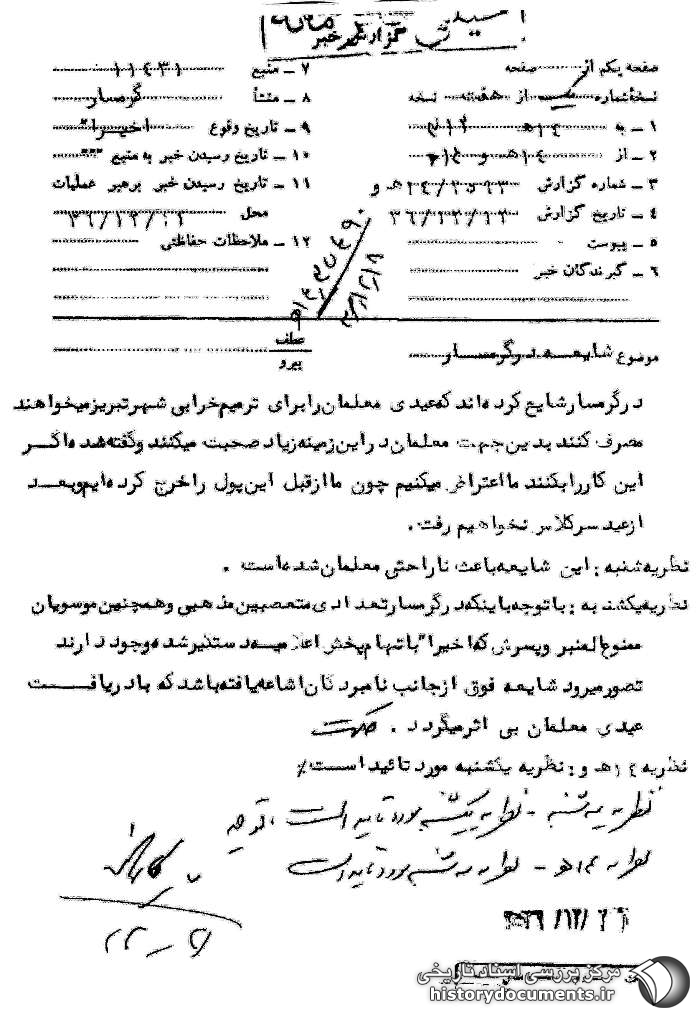 گزارش خبر
صفحه یکم از صفحه
نسخهشماره از هفت نسخه
۱ـ به ۱۴هـ ۳۱۲
۲ـ از ۱۴هـ و
۳ـ شماره گزارش
۴ـ تاریخ گزارش ۳۶/۱۲/۱۳
۵ـ پیوست
۶ـ گیرندگان خبر
۷ـ منبع ۱۱۴۳۱
۸ـ منشأ گرمسار
۹ـ تاریخ وقوع اخیرا"
۱۰ـ تاریخ رسیدن خبر به منبع """
۱۱ـ تاریخ رسیدن خبر برهبر عملیات
محل ۳۶/۱۲/۱۲
۱۲ـ ملاحظات حفاظتی
موضوع شایعه درگرمسار
عطف
پیرو
درگرمسار شایع کرده‌اند که عیدی معلمان را برای ترمیم خرابی شهر تبریز میخواهند
مصرف کنند بدین جهت معلمان در این زمینه زیاد صحبت میکنند و گفته شده اگر
این کار را بکنند ما اعتراض میکنیم چون ما از قبل این پول را خرج کرده‌ایم و بعد
از عید سر کلاس نخواهیم رفت.
نظریه شنبه: این شایعه باعث ناراحتی معلمان شده است.
نظریه یکشنبه: با توجه باینکه درگرمسار تعدادی متعصبین مذهبی و همچنین موسویان
ممنوع المنبر و پسرش که اخیرا" باتهام پخش اعلامیه دستگیر شده وجود دارند
تصور میرود شایعه فوق از جانب نامبردگان اشاعه یافته باشد که با دریافت
عیدی معلمان بی اثر میگردد. حکمت
نظریه ۱۴هـ و: نظریه یکشنبه مورد تائید است./
نظریه سه شنبه - نظریه یکشنبه مورد تایید است. توجیه
نظریه ۱۴هـ - نظریه سه شنبه مورد تایید است
مرکز بررسی اسناد تاریخی
historydocuments.ir